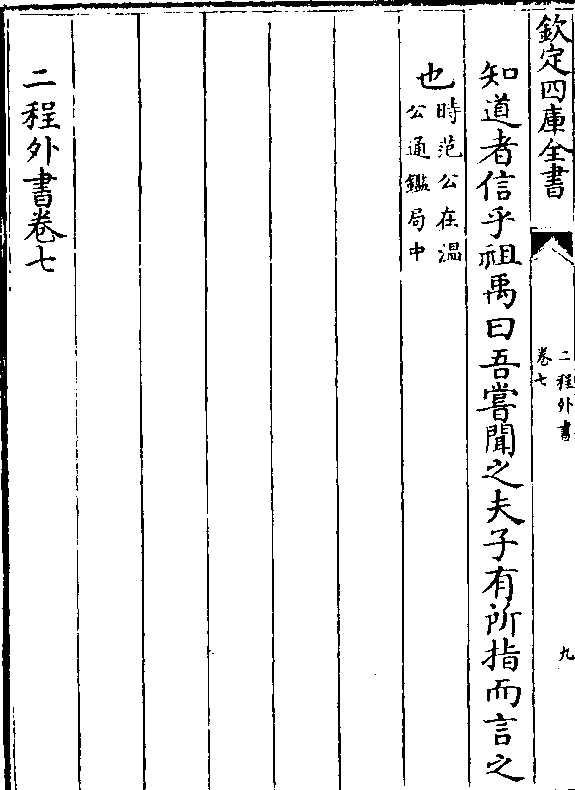 欽定四庫全書
二程外書
卷七
九
知道者信乎祖禹曰吾嘗聞之夫子有所指而言之
也時范公在溫
公通鑑局中
二程外書卷七